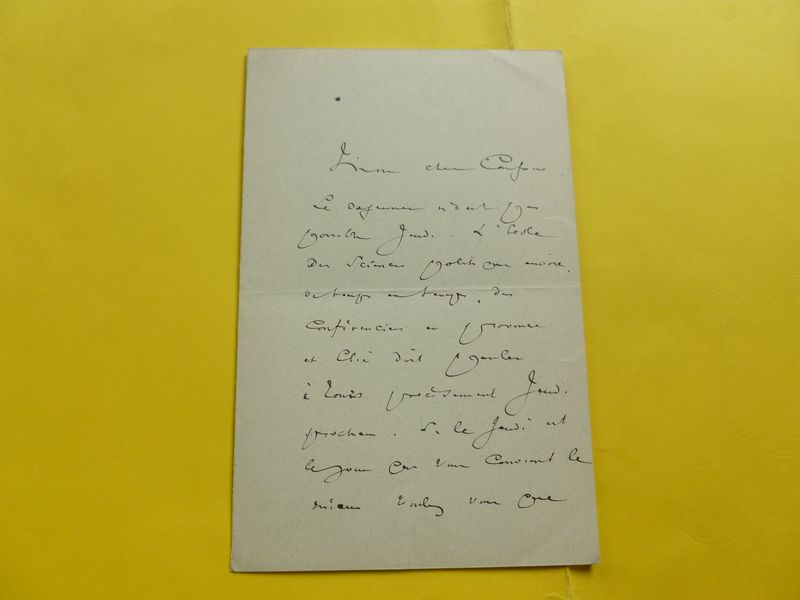 Mon cher Confrère
Le déjeuner n'est pas
possible Jeudi. L'École
des Sciences politiques envoie,
de temps en temps, des
Conférenciers en province
et doit parler
à Tours précisément Jeudi
prochain. Si le Jeudi est
le jour qui vous convient le
mieux voulez vous que